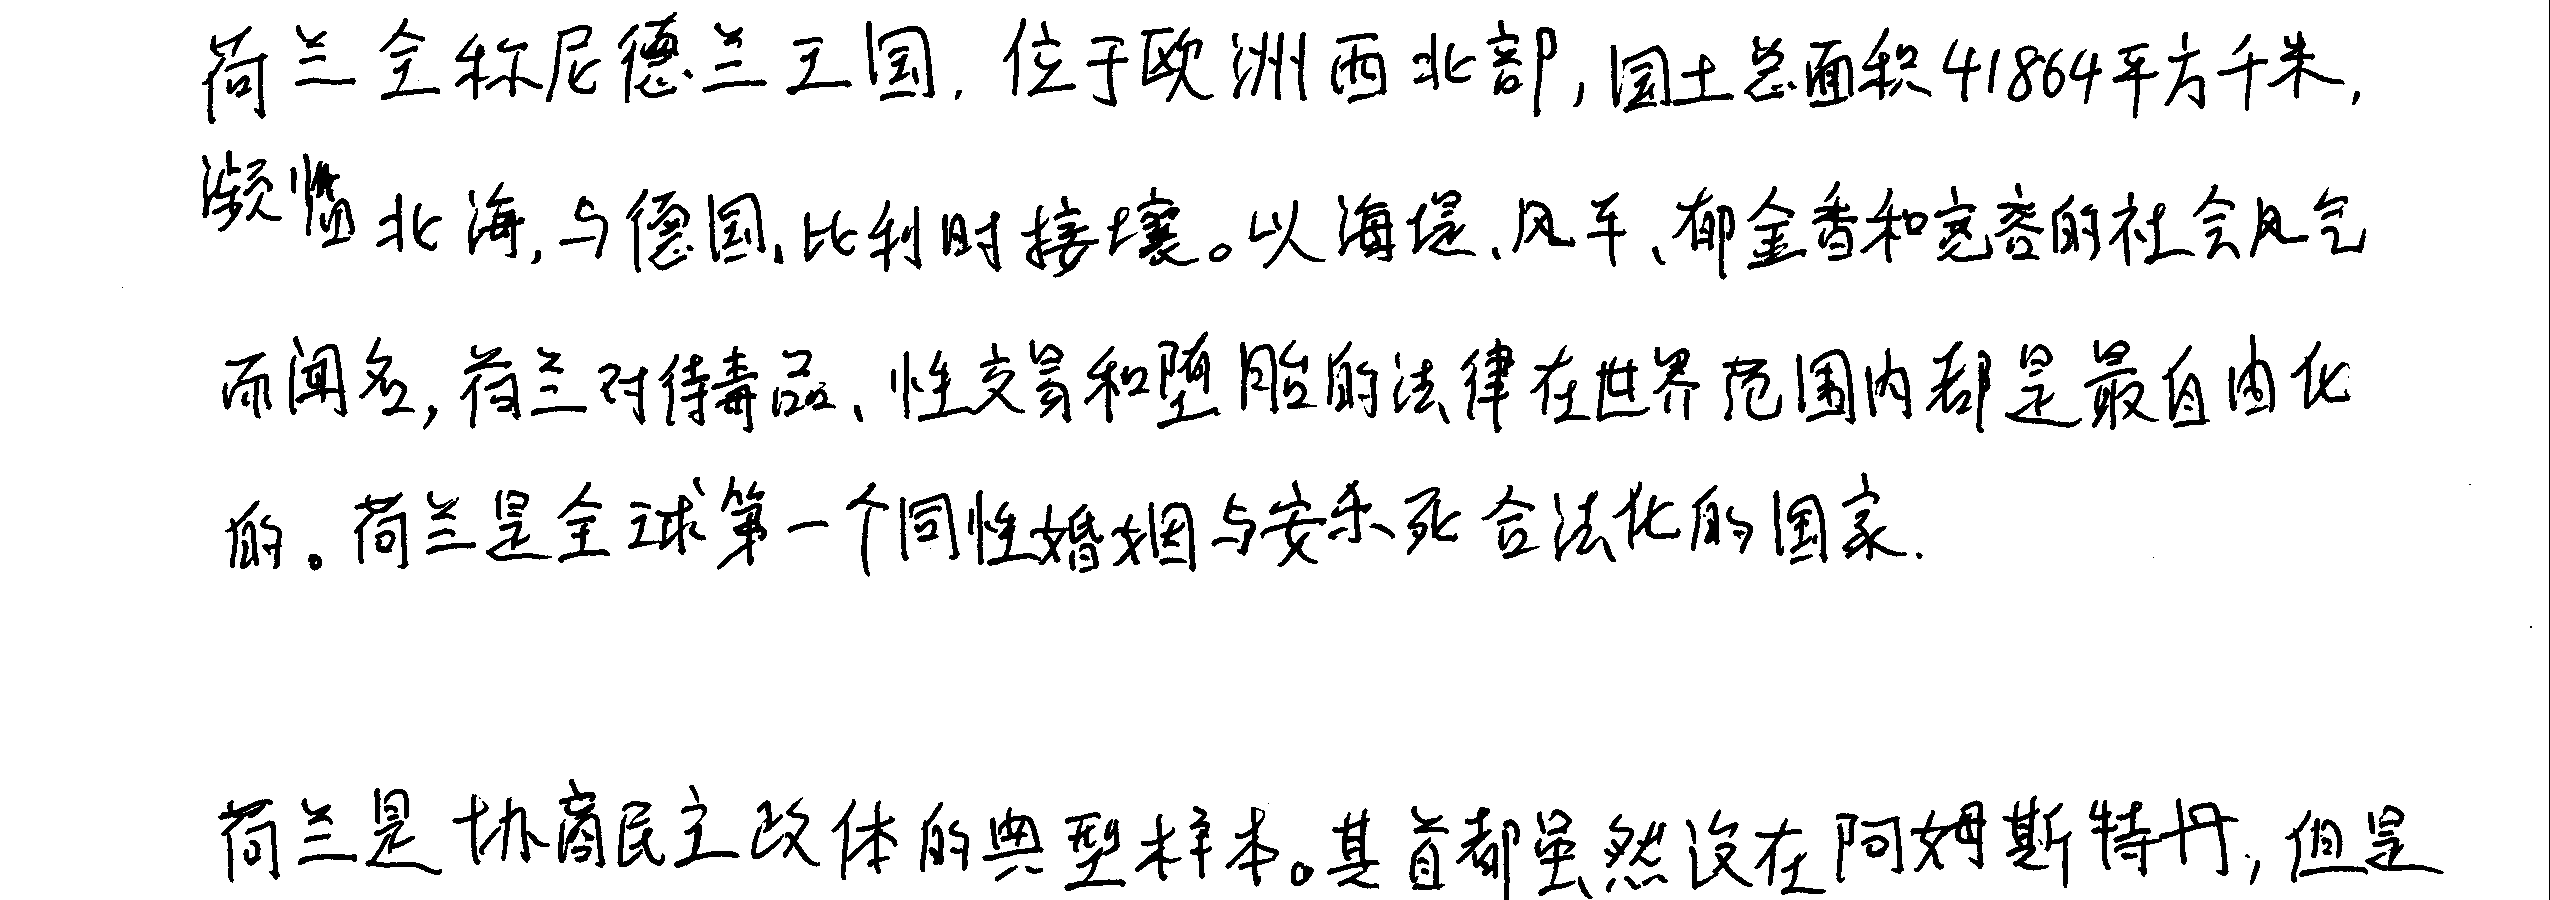 荷兰全称尼德兰王国，位于欧洲西北部，国土总面积41864平方千米，
濒临北海，与德国、比利时接壤。以海堤、风车、郁金香和宽容的社会风气
而闻名，荷兰对待毒品、性交易和堕胎的法律在世界范围内都是最自由化
的。荷兰是全球第一个同性婚姻与安乐死合法化的国家.
荷兰是协商民主政体的典型样本。其首都虽然设在阿姆斯特丹，但是